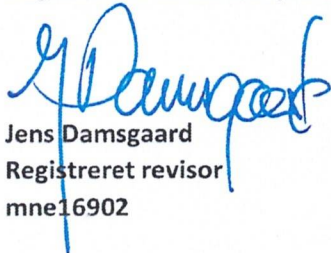 J Damsgaard
Jens Damsgaard
Registreret revisor
mne16902